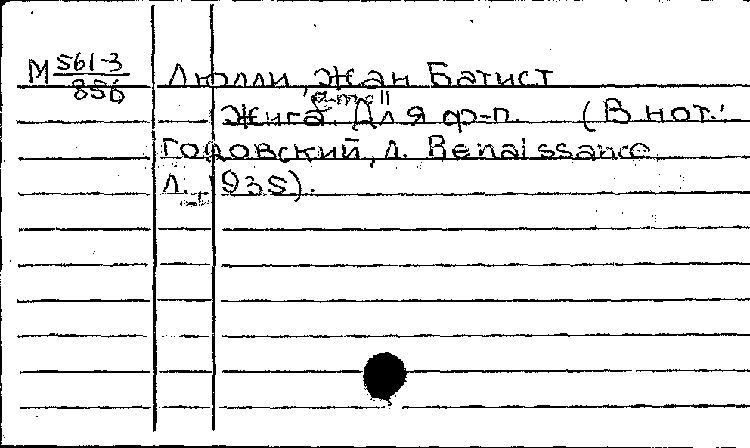 М 561-3
856
Люлли, Жан Батист
"E-moll"
Жига. Для ф-п. (В нот.:
Годовский, Л. Renaissance
Л., 1935).